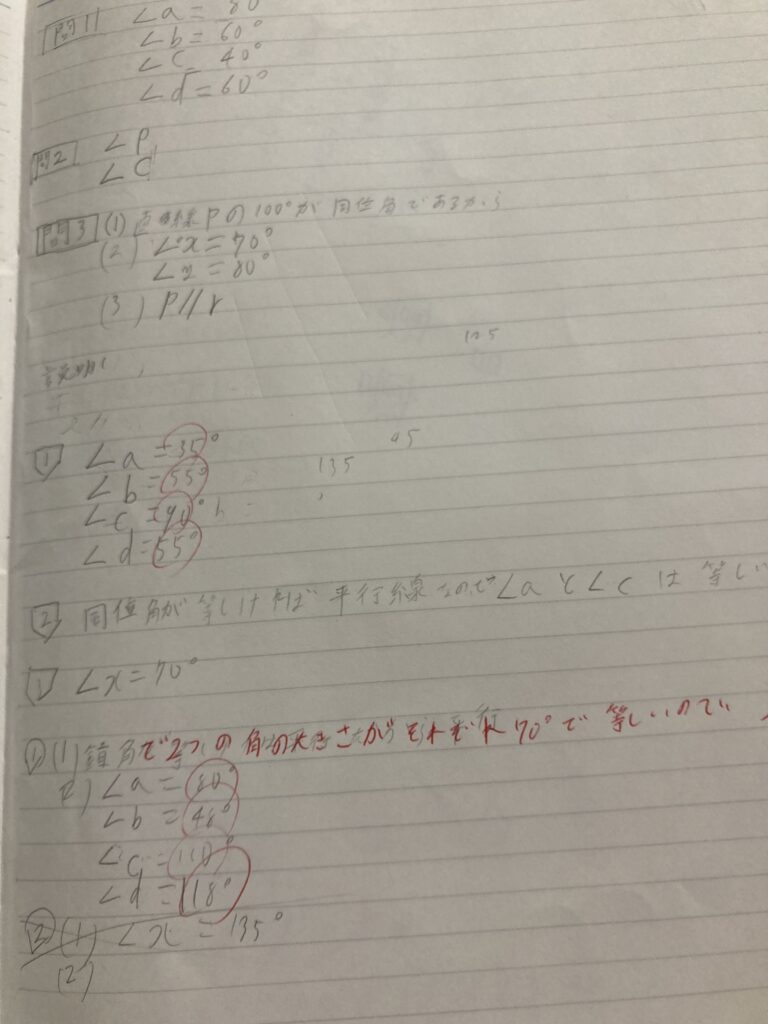 問1 ∠a = 80°
∠b = 60°
∠c 40°
∠d = 60°
問2 ∠P
∠C
問3 (1) 直線Pの100°が同位角であるから
(2) ∠x = 70°
∠y = 80°
(3) P//r
125
説明
1 ∠a = 35°
45
∠b = 55°
135
∠c = 90°
∠d = 55°
2 同位角が等しければ平行線なので∠aと∠cは等しい
1 ∠x = 70°
① (1) 錯角で2つの角の大きさがそれぞれ70°で等しいので
(2) ∠a = 80°
∠b = 48°
∠c = 110°
∠d = 118°
② (1) ∠x = 135°
(2)